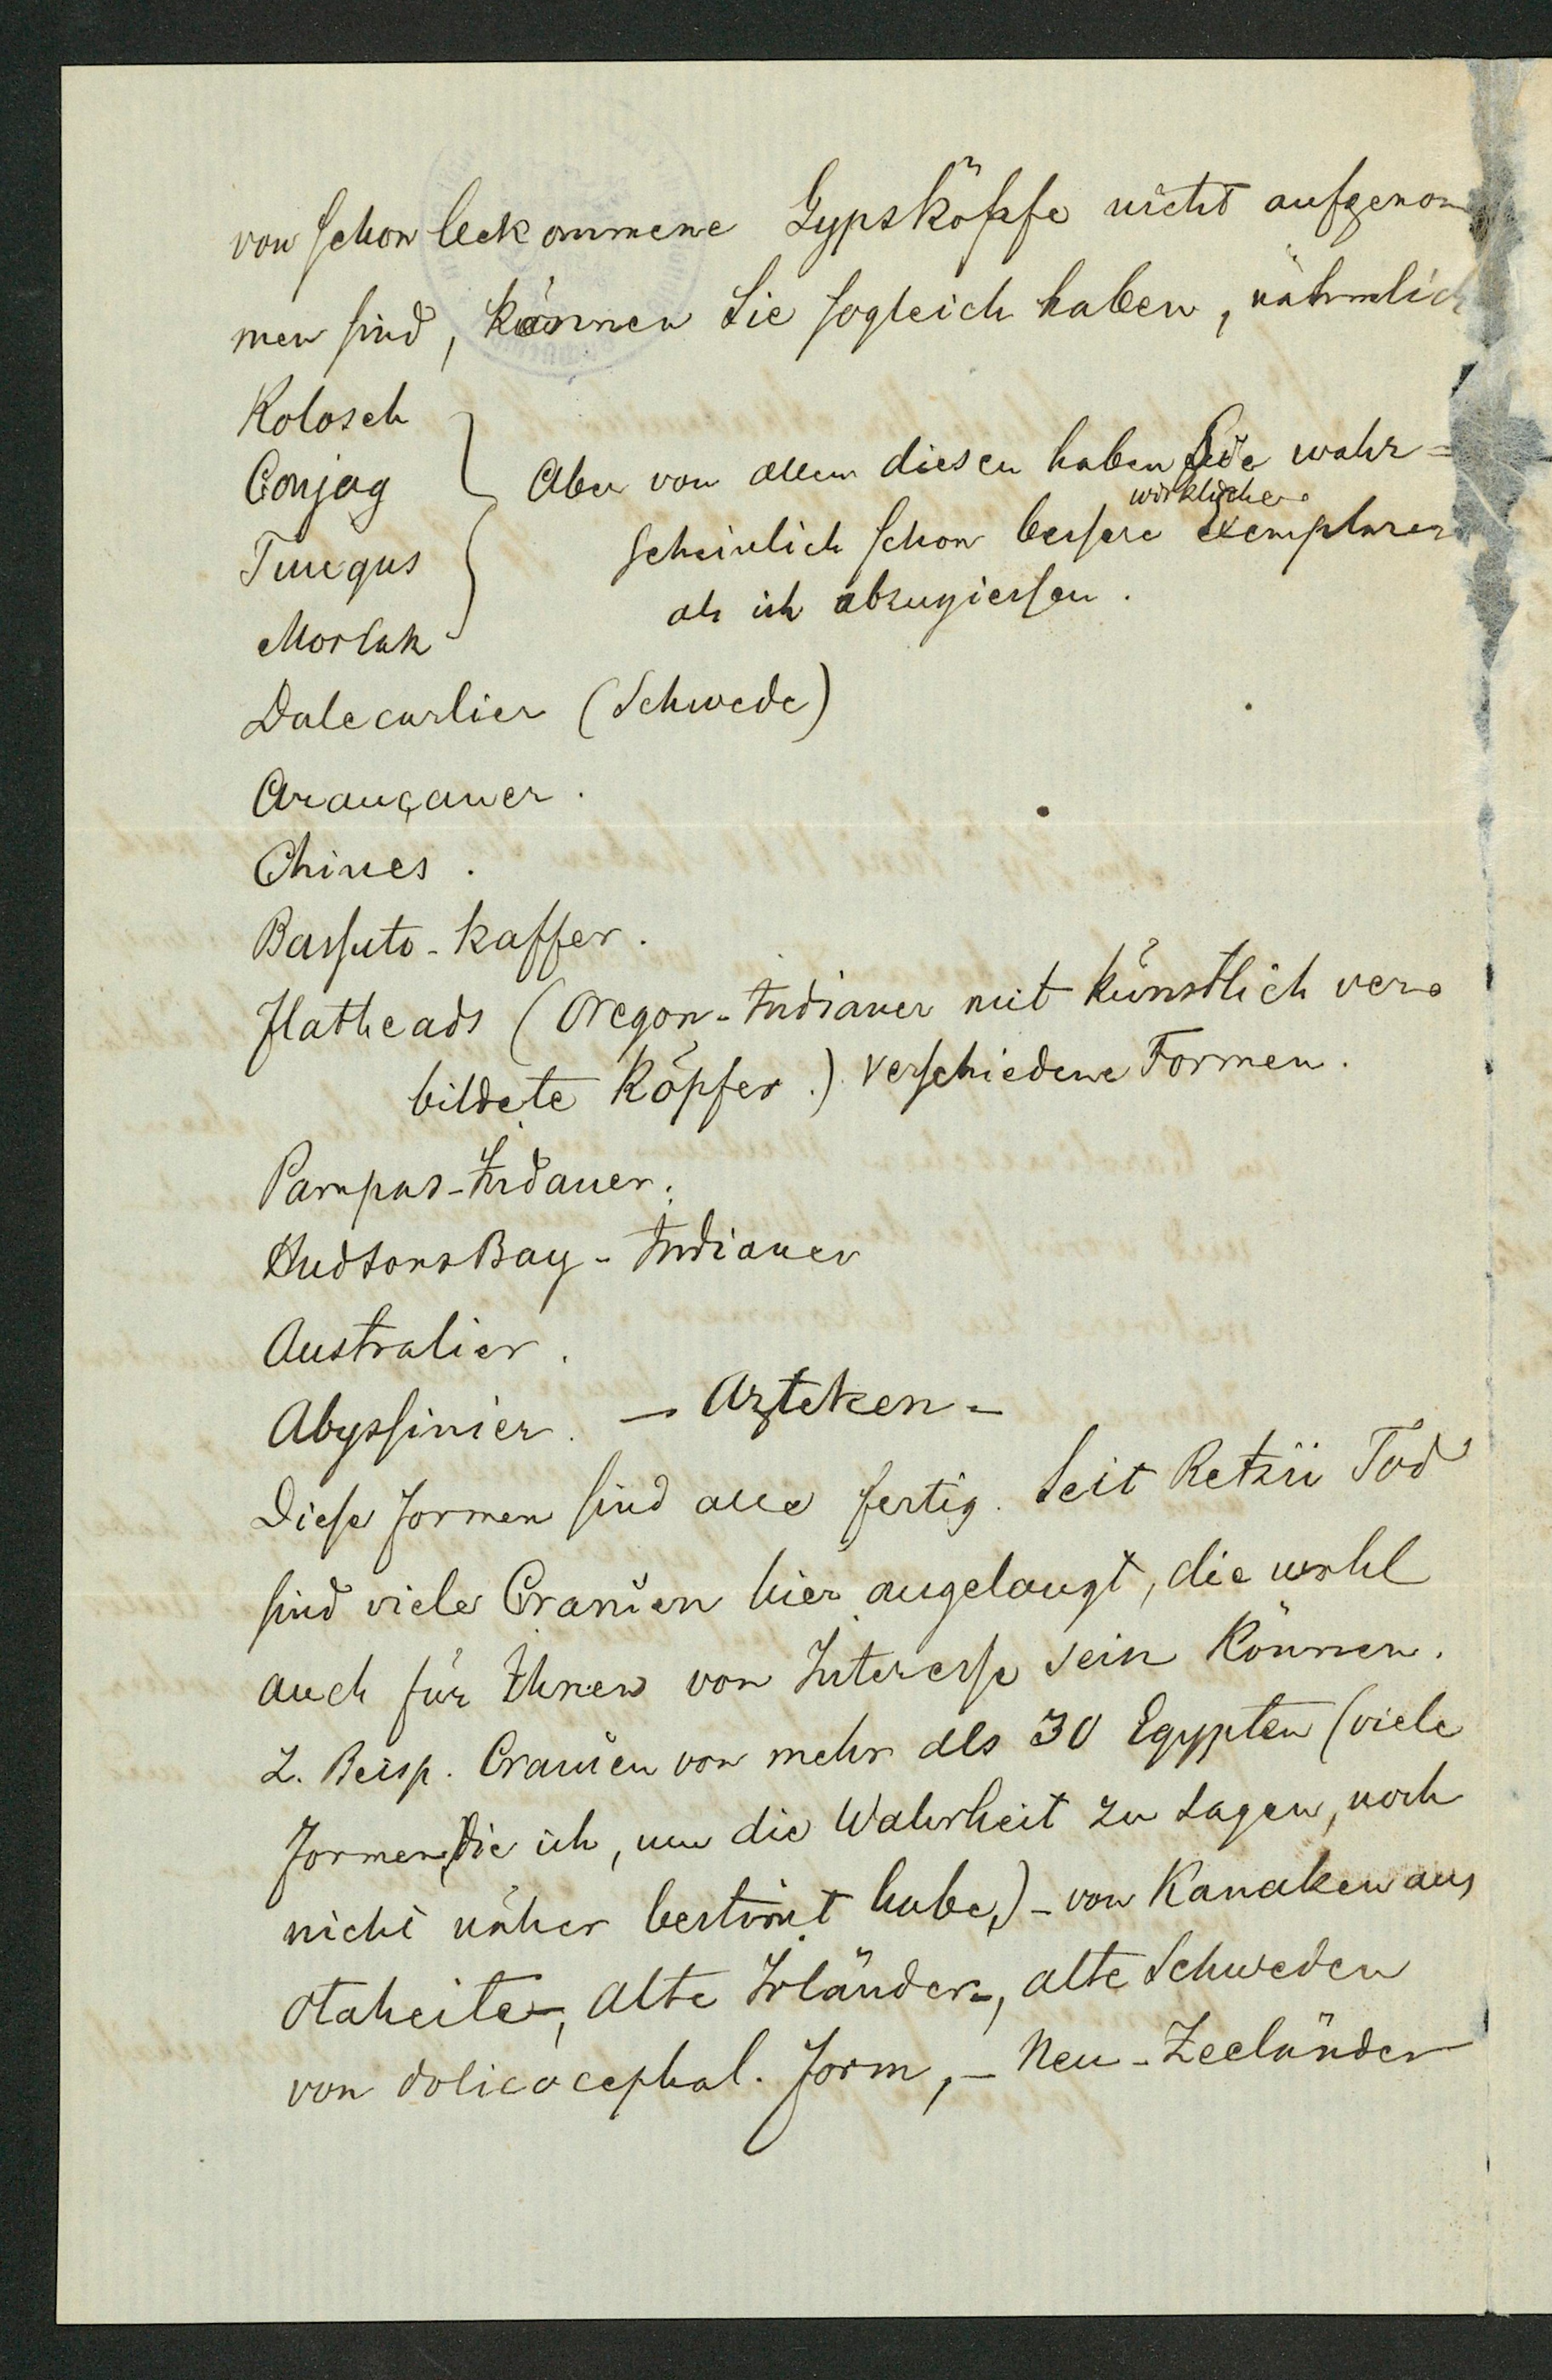 von schon beckommene Gypsköpfe nicht aufgenom
men sind, können Sie sogleich haben, nähmlich
Kolosch
Conjag
Tungus
Morlak
Aber von allen diesen haben Sie wahr=
scheinlich schon bessere wirkliche Exemplarer
als ich abzugiessen.
Dalecarlier (Schwede)
Arauçaner.
Chines.
Bassuto-Kaffer.
Flatheads (Oregon-Indianer mit künstlich ver=
bildete Köpfer.) verschiedene Formen.
Pampas-Indaner.
HudsonsBay-Indianer
Australier.
Abyssinier. – Azteken –
Diese Formen sind alle fertig. Seit Retzii Tod
sind viele Cranien hier angelangt, die wohl
auch für Ihnen von Interesse sein können.
Z. Beisp. Cranien von mehr als 30 Egypten (viele
Formen, die ich, um die Wahrheit zu sagen, noch
nicht näher bestim̄t habe,) – von Kanaken aus
Otaheite –, alte Irländer –, alte Schweden
von dolicocephal. Form, – Neu-Zeeländer